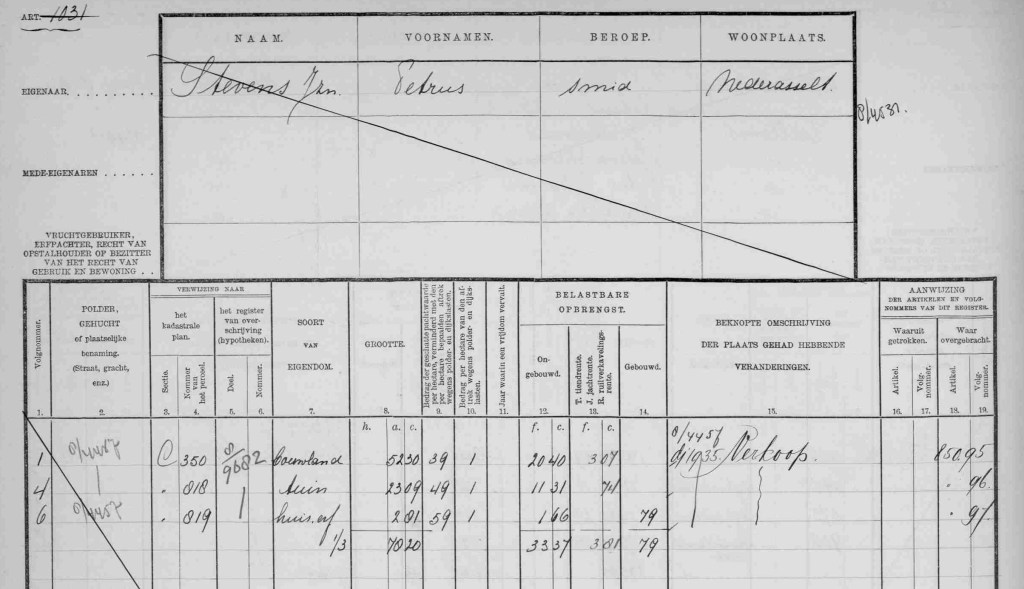 ART. 1031
NAAM. VOORNAMEN. BEROEP. WOONPLAATS.
EIGENAAR. Stevens Jzn. Petrus smid Nederasselt.
MEDE-EIGENAREN
VRUCHTGEBRUIKER,
ERFPACHTER, RECHT VAN
OPSTALHOUDER OF BEZITTER
VAN HET RECHT VAN
GEBRUIK EN BEWONING
Volgnommer.
POLDER,
GEHUCHT
of plaatselijke
benaming.
(Straat, gracht,
enz.)
VERWIJZING NAAR
het
kadastrale
plan.
Sectie.
Nommer
van
het perceel.
het register
van over-
schrijving
(hypotheken).
Deel.
Nommer.
SOORT
VAN
EIGENDOM.
GROOTTE.
Bedrag der geschatte pachtwaarde
per hectare, verminderd met den
per hectare bepaalden aftrek
wegens polder- en dijkslasten.
Bedrag per hectare van den af-
trek wegens polder- en dijks-
lasten.
Jaar waarin een vrijdom vervalt.
BELASTBARE
OPBRENGST.
On-
gebouwd.
T. tiendrente.
J. jachtrente.
R. ruilverkavelings-
rente.
Gebouwd.
BEKNOPTE OMSCHRIJVING
DER PLAATS GEHAD HEBBENDE
VERANDERINGEN.
AANWIJZING
DER ARTIKELEN EN VOLG-
NOMMERS VAN DIT REGISTER.
Waaruit
getrokken.
Artikel.
Volg-
nommer.
Waar
overgebracht.
Artikel.
Volg-
nommer.
1. 2. 3. 4. 5. 6. 7. 8. 9. 10. 11. 12. 13. 14. 15. 16. 17. 18. 19.
h. a. c. f. c. f. c.
1 C 350 8/9682 bouwland 52 30 39 1 20 40 3 07 dj 1935 Verkoop. 850 95
4 " 818 tuin 23 09 49 1 11 31 74 " 96
6 " 819 huis, erf 2 81 59 1 1 66 79 " 97
1/3 78 20 33 37 3 81 79